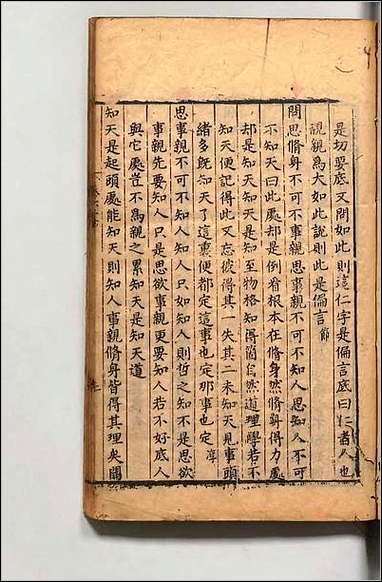 是切要底又問如此則這仁字是偏言底曰仁者人也
親親為大如此說則此是偏言 節
問思脩身不可不事親思事親不可不知人思知人不可
不知天曰此處却是倒看根本在脩身然脩身得力處
却是知天知天是知至物格知得箇自然道理學若不
知天便記得此又忘彼得其一失其二未知天見事頭
緒多旣知天了這裏便都定這事也定那事也定 淳
思事親不可不知人知人只如知人則哲之知不是思欲
事親先要知人只是思欲事親更要知人若不好底人
與它處豈不為親之累知天是知天道
知天是起頭處能知天則知人事親脩身皆得其理矣聞